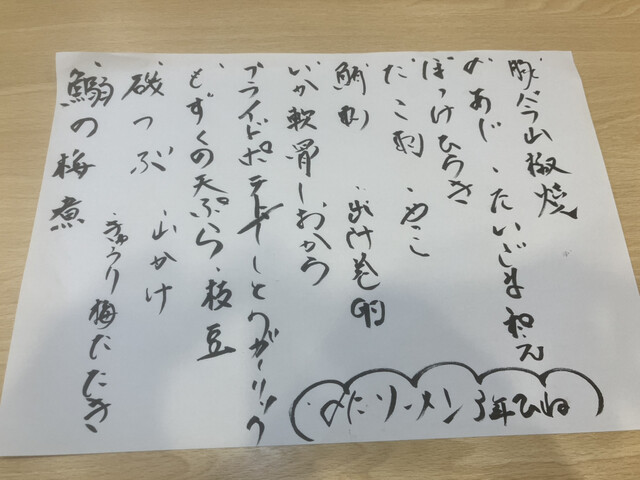 豚バラ山椒焼
〆あじ・たいごま和え
ほっけひらき
たこ刺・やっこ
鮪刺・出汁巻卵
いか軟骨しおから
フライドポテト
もずくの天ぷら・枝豆
磯つぶ・山かけ
・きゅうり梅たたき
鰯の梅煮
ソーメン 3年ひね